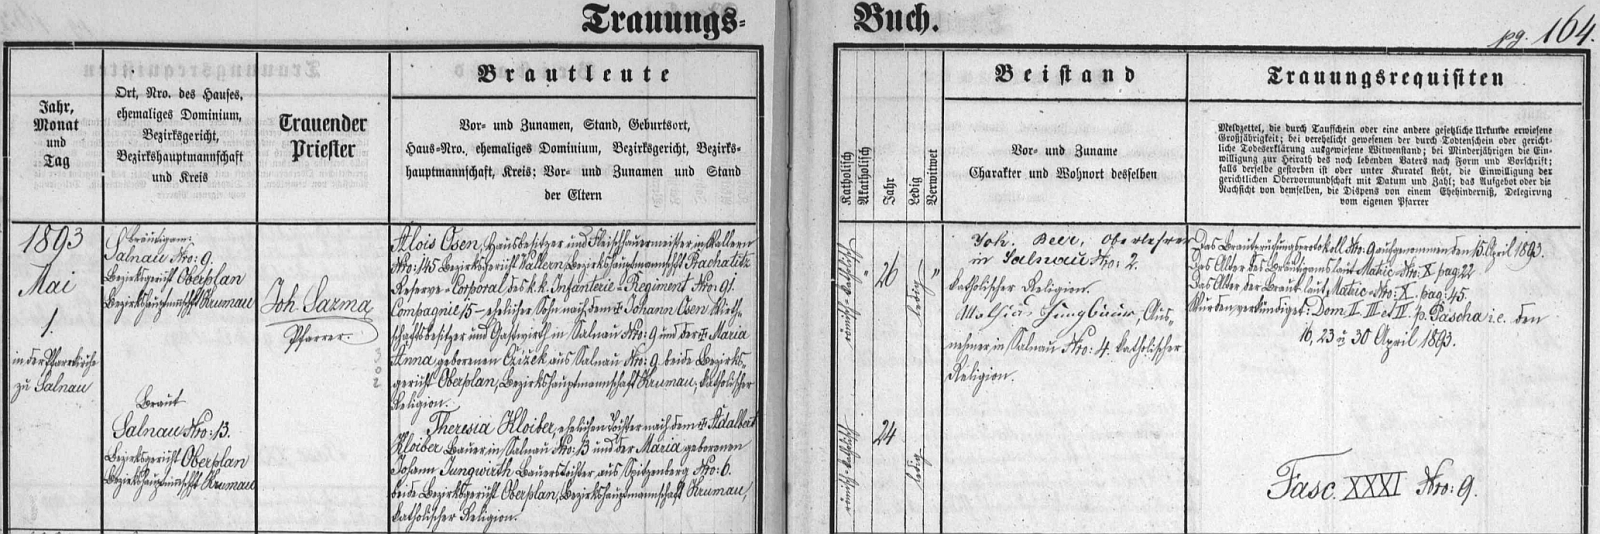 Trauungs-
Buch.
pg. 164.
Jahr,
Monat
und
Tag
Ort, Nro. des Hauses,
ehemaliges Dominium,
Bezirksgericht,
Bezirkshauptmannschaft
und Kreis
Trauender
Priester
Brautleute
Vor- und Zunamen, Stand, Geburtsort,
Haus-Nro., ehemaliges Dominium, Bezirksgericht, Bezirks-
hauptmannschaft, Kreis; Vor- und Zunamen und Stand
der Eltern
Katholisch
Akatholisch
Jahr
Ledig
Verwitwet
Beistand
Vor- und Zuname
Charakter und Wohnort desselben
Trauungsrequisiten
Meldzettel, die durch Taufschein oder eine andere gesetzliche Urkunde erwiesene
Großjährigkeit; bei verehelicht gewesenen der durch Todtenschein oder gericht-
liche Todeserklärung ausgewiesene Witwenstand; bei Minderjährigen die Ein-
willigung zur Heirath des noch lebenden Vaters nach Form und Vorschrift;
falls derselbe gestorben ist oder unter Kuratel steht, die Einwilligung der
gerichtlichen Obervormundschaft mit Datum und Zahl; das Aufgebot oder die
Nachsicht von demselben, die Dispens von einem Ehehinderniß, Delegirung
vom eigenen Pfarrer
1893
Mai
1.
in der Pfarrkirche
zu Salnau
Bräutigam:
Salnau Nro: 9.
Bezirksgericht Oberplan
Bezirkshauptmannschft Krumau
Braut
Salnau Nro: 13.
Bezirksgericht Oberplan
Bezirkshauptmannschft Krumau
Joh. Sazma
Pfarrer
Alois Osen, Hausbesitzer und Fleischhauermeister in Wallern
Nro: 145 Bezirksgericht Wallern, Bezirkshauptmannschft Prachatitz
Reserve-Corporal des k.k. Infanterie-Regiment Nro: 91.
Compagnie 15 – ehelicher Sohn nach dem † Johann Osen Wirth-
schaftsbesitzer und Gastwirth in Salnau Nro: 9 und der † Maria
Anna gebornen Czizek aus Salnau Nro: 9. beide Bezirks-
gericht Oberplan, Bezirkshauptmannschaft Krumau, katholischer
Religion.
Theresia Kloiber, ehelichen Tochter nach dem † Adalbert
Kloiber Bauer in Salnau Nro: 13 und der Maria gebornen
Johann Jungwirth Bauerstochter aus Spitzenberg Nro: 6.
beide Bezirksgericht Oberplan, Bezirkshauptmannschaft Krumau,
katholischer Religion.
römisch-katholisch
"
26
ledig
"
römisch-katholisch
24
ledig
Joh. Beer, Oberlehrer
in Salnau Nro: 2.
katholischer Religion.
Jungbauer, Aus-
nehmer in Salnau Nro: 4. katholischer
Religion.
Das Brautprüfungsprotokoll Nro: 9 aufgenommen den 15. April 1893.
Das Alter des Bräutigams laut Matric. Nro: X pag: 22
Das Alter der Braut laut Matric. Nro: X. pag: 45.
Wurden verkündiget: Dom II. III et IV. p. Pascha i.e. den
16, 23 u 30 April 1893.
Fasc. XXXI Nro: 9.